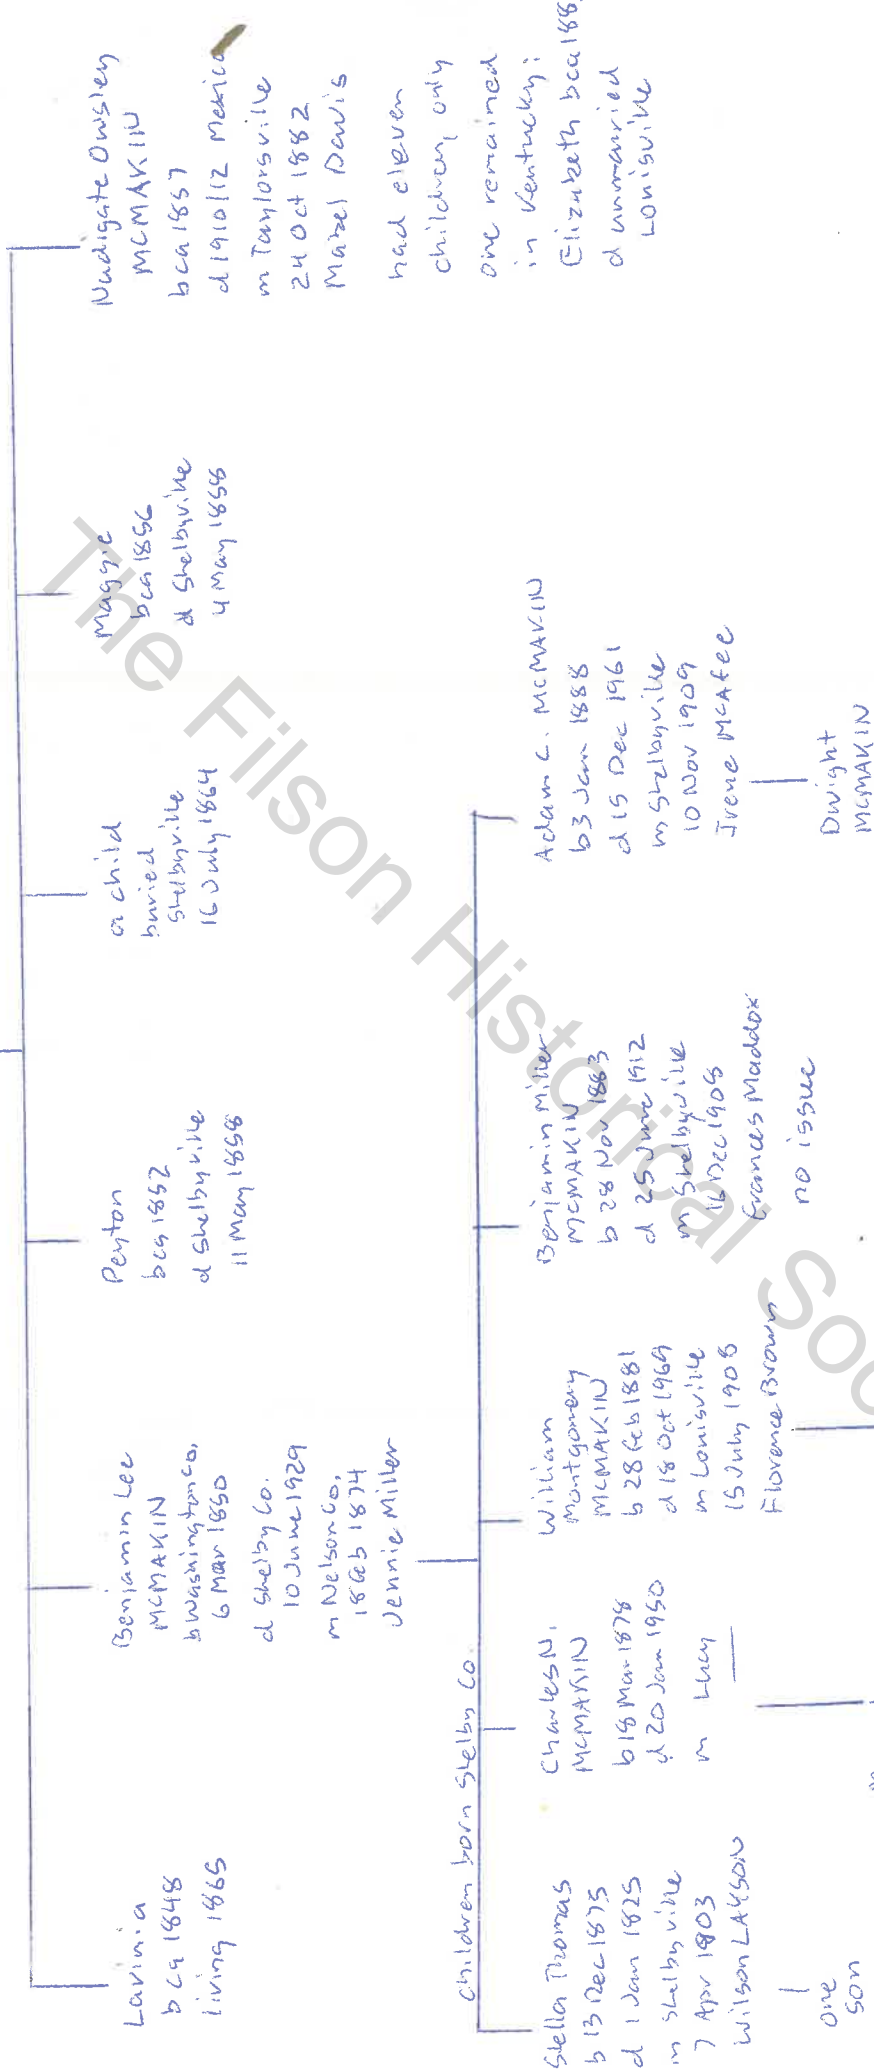 Lavinia
bca 1848
living 1865
Benjamin Lee
MCMAKIN
b Washington Co,
6 Mar 1850
d Shelby Co.
10 June 1929
m Nelson Co,
18 Feb 1874
Jennie Miller
Peyton
bca 1852
d Shelbyville
11 May 1858
a child
buried
Shelbyville
16 July 1864
Maggie
bca 1856
d Shelbyville
4 May 1858
Nudigate Owsley
MCMAKIN
bca 1857
d 1910/12 Mexico
m Taylorsville
24 Oct 1882
Mabel Davis
had eleven
children, only
one remained
in Kentucky:
Elizabeth bca 188
d unmarried
Louisville
children born Shelby Co
Stella Thomas
b 13 Dec 1875
d 1 Jan 1825
m Shelbyville
7 Apr 1903
Wilson LAYSON
one
son
Charles N.
MCMAKIN
b 18 Mar 1878
d 20 Jan 1950
m Lucy
William
Montgomery
MCMAKIN
b 28 Feb 1881
d 18 Oct 1969
m Louisville
15 July 1908
Florence Brown
Benjamin Miller
MCMAKIN
b 28 Nov 1883
d 25 June 1912
m Shelbyville
16 Dec 1908
Frances Maddox
no issue
Adam C. MCMAKIN
b 3 Jan 1888
d 15 Dec 1961
m Shelbyville
10 Nov 1909
Irene McAfee
Dwight
MCMAKIN
The Filson Historical Soc